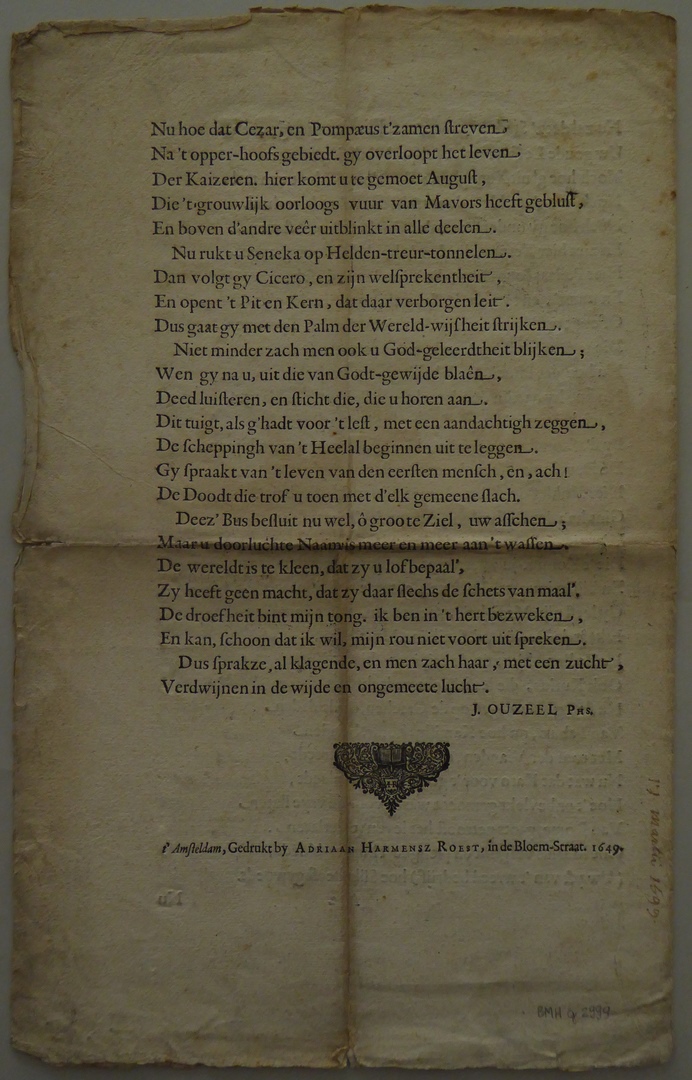 Nu hoe dat Cezar, en Pompæus t'zamen ſtreven
Na 't opper-hoofsgebiedt. gy overloopt het leven
Der Kaizeren. hier komt u te gemoet Auguſt,
Die 't grouwlijk oorloogs vuur van Mavors heeft gebluſt,
En boven d'andre veêr uitblinkt in alle deelen.
Nu rukt u Seneka op Helden-treur-tonnelen.
Dan volgt gy Cicero, en zijn welſprekentheit,
En opent 't Pit en Kern, dat daar verborgen leit.
Dus gaat gy met den Palm der Wereld-wijſheit ſtrijken.
Niet minder zach men ook u God-geleerdtheit blijken;
Wen gy na u, uit die van Godt-gewijde blaên,
Deed luiſteren, en ſticht die, die u horen aan.
Dit tuigt, als g'hadt voor 't leſt, met een aandachtigh zeggen,
De ſcheppingh van 't Heelal beginnen uit te leggen.
Gy ſpraakt van 't leven van den eerſten menſch, en, ach!
De Doodt die trof u toen met d'elk gemeene ſlach.
Deez' Bus beſluit nu wel, ô groote Ziel, uw aſſchen;
Maar u doorluchte Naam is meer en meer aan 't waſſen.
De wereldt is te kleen, dat zy u lof bepaal',
Zy heeft geen macht, dat zy daar ſlechs de ſchets van maal'.
De droefheit bint mijn tong. ik ben in 't hert bezweken,
En kan, ſchoon dat ik wil, mijn rou niet voort uit ſpreken.
Dus ſprakze, al klagende, en men zach haar, met een zucht,
Verdwijnen in de wijde en ongemeete lucht.
J. OUZEEL PHS.
t' Amſteldam, Gedrukt by ADRIAAN HARMENSZ ROEST, in de Bloem-Straat. 1649.
martii 1649
BMH 2999